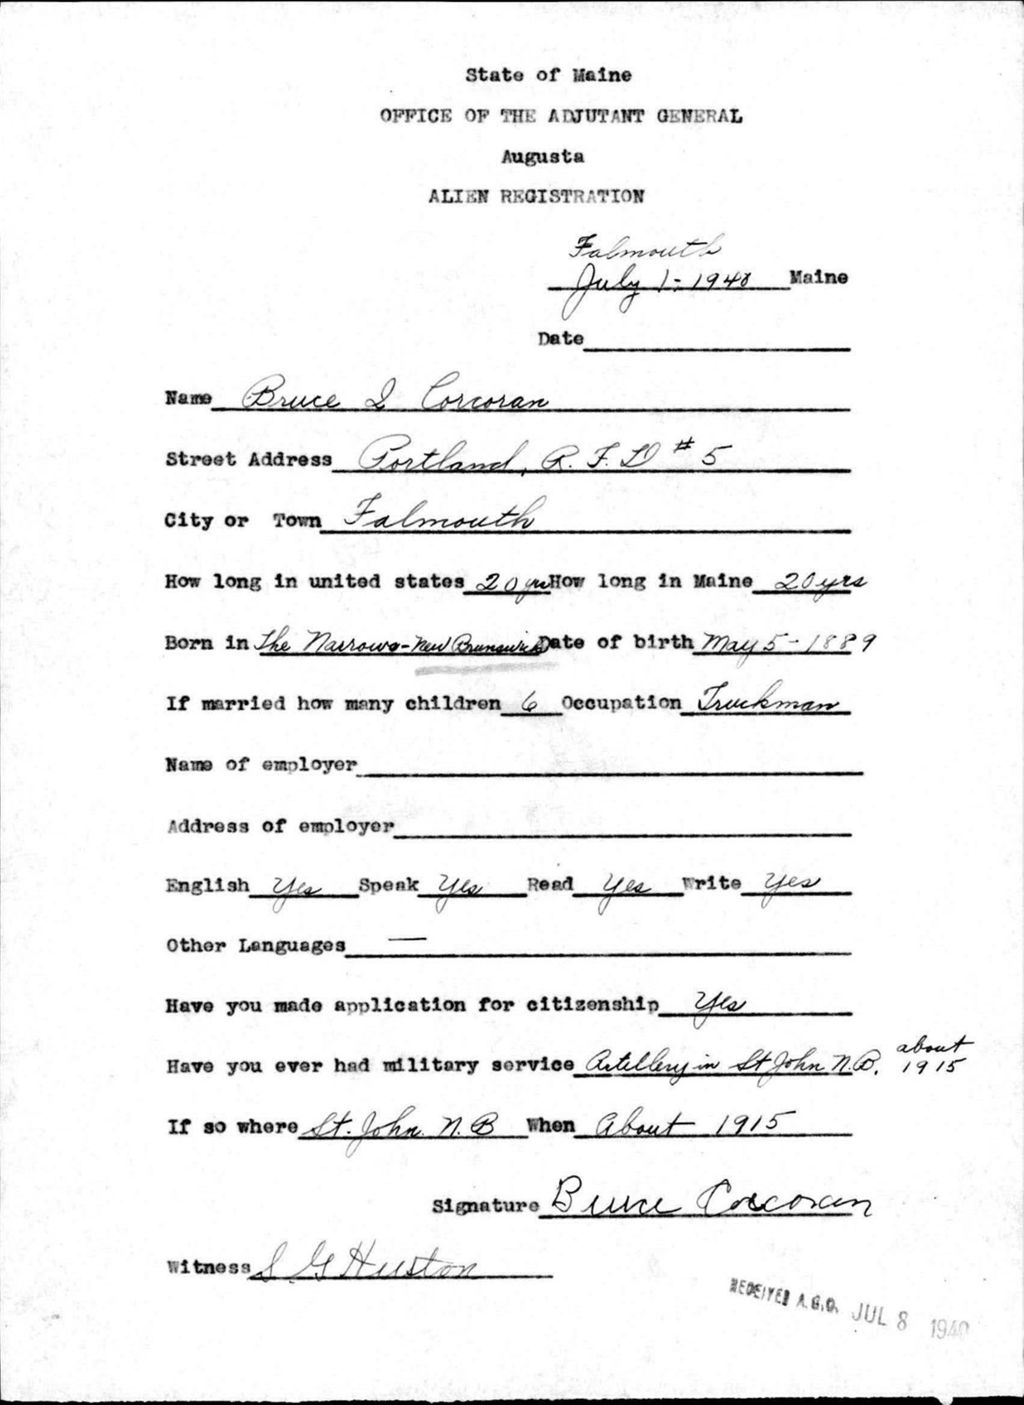 State of Maine
OFFICE OF THE ADJUTANT GENERAL
Augusta
ALIEN REGISTRATION
Falmouth
July 1-1940 Maine
Date
Name Bruce I Corcoran
Street Address Portland, R.F.D #5
City or Town Falmouth
How long in united states 20 yrs How long in Maine 20 yrs
Born in The Narrows-New Brunswick Date of birth May 5-1889
If married how many children 6 Occupation Truckman
Name of employer
Address of employer
English Yes Speak Yes Read Yes Write Yes
Other Languages —
Have you made application for citizenship Yes
Have you ever had military service Artillery in St John N.B. about 1915
If so where St. John N.B When About 1915
Signature Bruce Corcoran
Witness S G Huston
RECEIVED A.G.O. JUL 8 1940